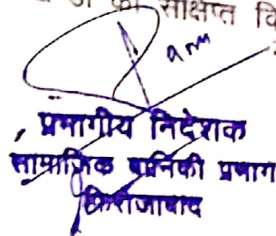 की संक्षिप्त वि
प्रभागीय निदेशक
सामाजिक वानिकी प्रभाग
फिरोजाबाद